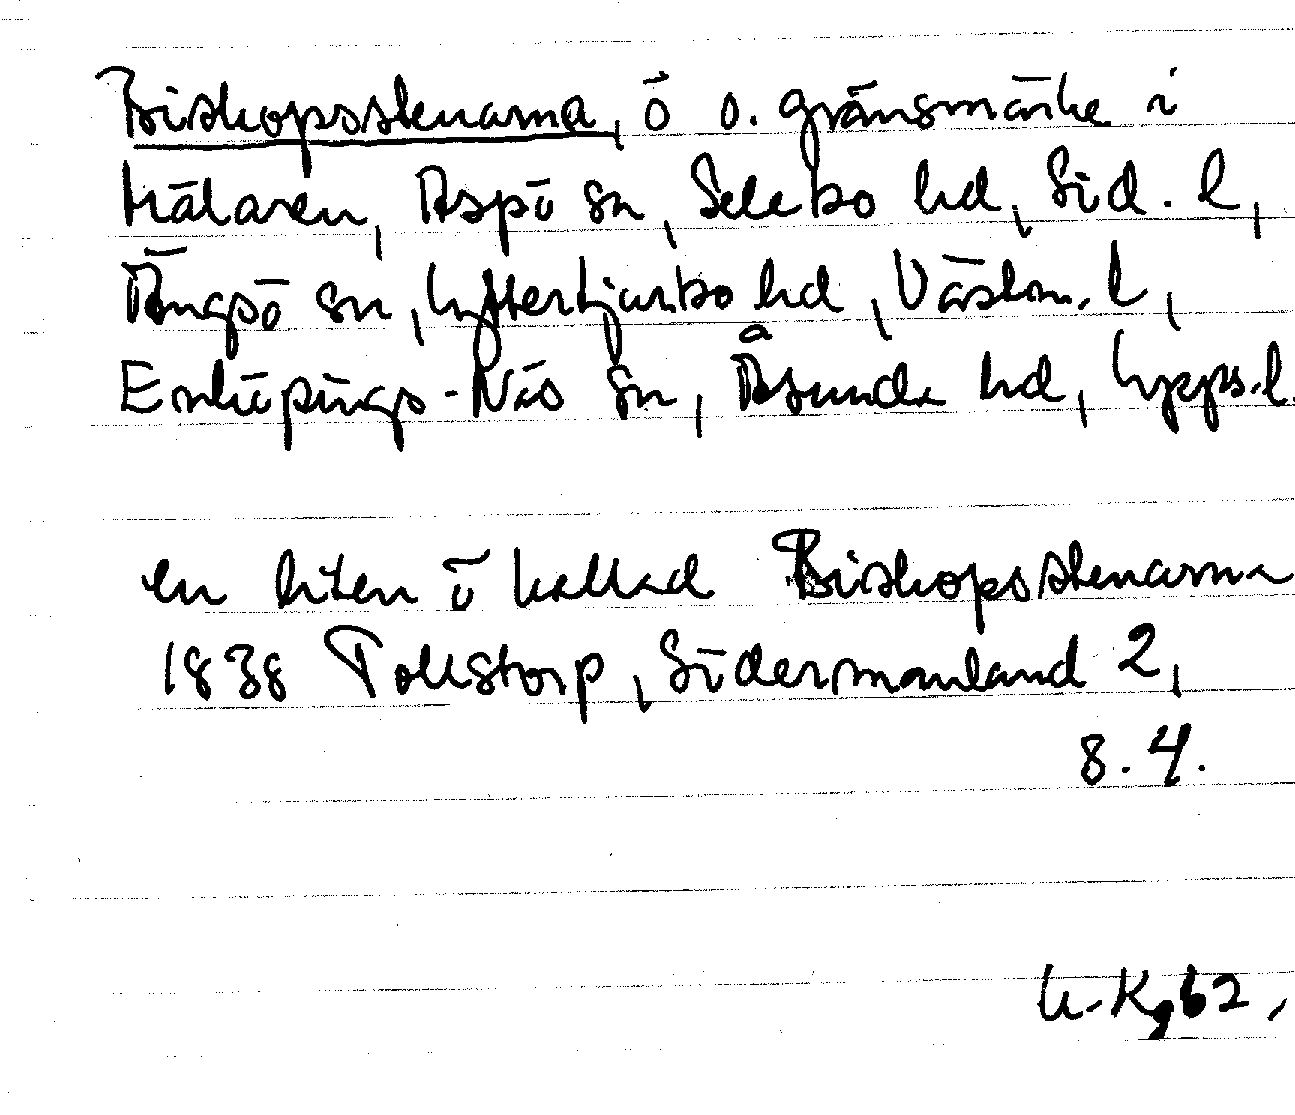 Biskopsstenarna, ö o. gränsmärke i
Mälaren, Aspö sn, Selebo hd, Söd. l,
Ängsö sn, Yttertjurbo hd, Västm. l,
Enköpings-Näs sn, Åsunda hd, Upps. l.
en liten ö kallad Biskopsstenarna
1838 Tollstorp, Södermanland 2,
8.4.
62,